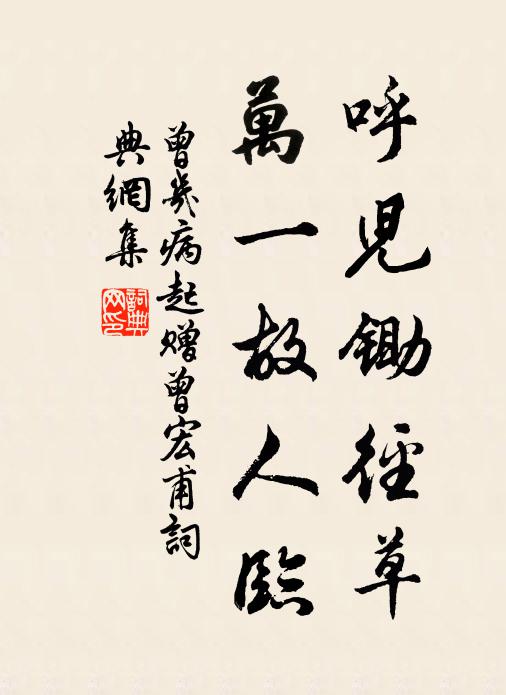 呼児鋤徑草
萬一故人臨
曾幾病起贈曾宏甫詞
典網集
詞典网印